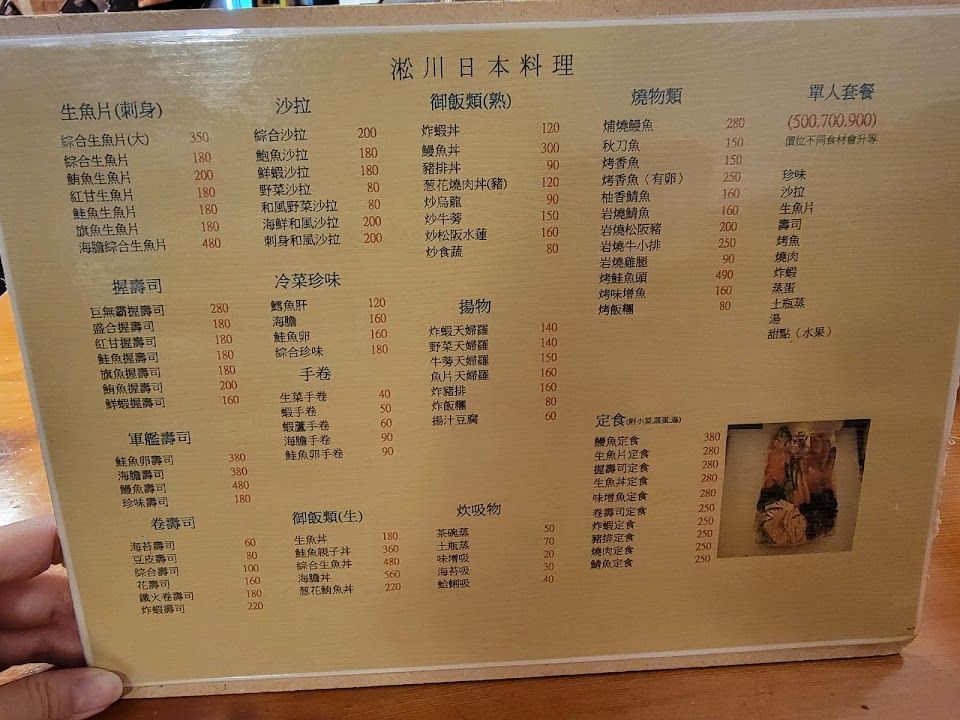 淞川日本料理
生魚片(刺身)
綜合生魚片(大) 350
綜合生魚片 180
鮪魚生魚片 200
紅甘生魚片 180
鮭魚生魚片 180
旗魚生魚片 180
海膽綜合生魚片 480
握壽司
巨無霸握壽司 280
盛合握壽司 180
紅甘握壽司 180
鮭魚握壽司 180
旗魚握壽司 180
鮪魚握壽司 200
鮮蝦握壽司 160
軍艦壽司
鮭魚卵壽司 380
海膽壽司 380
鰻魚壽司 480
珍味壽司 180
卷壽司
海苔壽司 60
豆皮壽司 80
綜合壽司 100
花壽司 160
鐵火卷壽司 180
炸蝦壽司 220
沙拉
綜合沙拉 200
鮑魚沙拉 180
鮮蝦沙拉 180
野菜沙拉 80
和風野菜沙拉 80
海鮮和風沙拉 200
刺身和風沙拉 200
冷菜珍味
鱈魚肝 120
海膽 160
鮭魚卵 160
綜合珍味 180
手卷
生菜手卷 40
蝦手卷 50
蝦蘆手卷 60
海膽手卷 90
鮭魚卵手卷 90
御飯類(生)
生魚丼 180
鮭魚親子丼 360
綜合生魚丼 480
海膽丼 560
葱花鮪魚丼 220
御飯類(熟)
炸蝦丼 120
鰻魚丼 300
豬排丼 90
葱花燒肉丼(豬) 120
炒烏龍 90
炒牛蒡 150
炒松阪水蓮 160
炒食蔬 80
揚物
炸蝦天婦羅 140
野菜天婦羅 140
牛蒡天婦羅 150
魚片天婦羅 160
炸豬排 160
炸飯糰 80
揚汁豆腐 60
炊吸物
茶碗蒸 50
土瓶蒸 70
味增吸 20
海苔吸 30
蛤蜊吸 40
燒物類
焗燒鰻魚 280
秋刀魚 150
烤香魚 150
烤香魚（有卵） 250
柚香鯖魚 160
岩燒鯖魚 160
岩燒松阪豬 200
岩燒牛小排 250
岩燒雞腿 90
烤鮭魚頭 490
烤味增魚 160
烤飯糰 80
定食(附小菜.蒸蛋.湯)
鰻魚定食 380
生魚片定食 280
握壽司定食 280
生魚丼定食 280
味增魚定食 280
卷壽司定食 250
炸蝦定食 250
豬排定食 250
燒肉定食 250
鯖魚定食 250
單人套餐
(500.700.900)
價位不同食材會升等
珍味
沙拉
生魚片
壽司
烤魚
燒肉
炸蝦
蒸蛋
土瓶蒸
湯
甜點（水果）